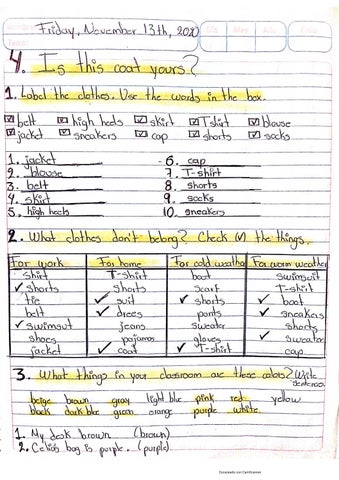 Friday, November 13th, 2020
4. Is this coat yours?
1. Label the clothes. Use the words in the box.
☑ belt ☑ high heels ☑ skirt ☑ T-shirt ☑ blouse
☑ jacket ☑ sneakers ☑ cap ☑ shorts ☑ socks
1. jacket 6. cap
2. blouse 7. T-shirt
3. belt 8. shorts
4. skirt 9. socks
5. high heels 10. sneakers
2. What clothes don't belong? Check (✓) the things.
For work For home For cold weather For warm weather
shirt T-shirt boot swimsuit
✓ shorts shorts scarf T-shirt
tie ✓ suit ✓ shorts ✓ boot
belt ✓ dress pants ✓ sneakers
✓ swimsuit jeans sweater shorts
shoes pajamas gloves ✓ sweater
jacket ✓ coat ✓ T-shirt cap
3. What things in your classroom are these colors? Write
sentences.
beige brown gray light blue pink red yellow
black dark blue green orange purple white
1. My desk brown (brown)
2. Celia's bag is purple. (purple)